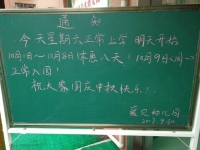 通知
今天星期六正常上学 明天开始
10月1日～10月8日休息八天！10月9日(周一)
正常入园！
祝大家国庆中秋快乐！
幼儿园
2017.9.30